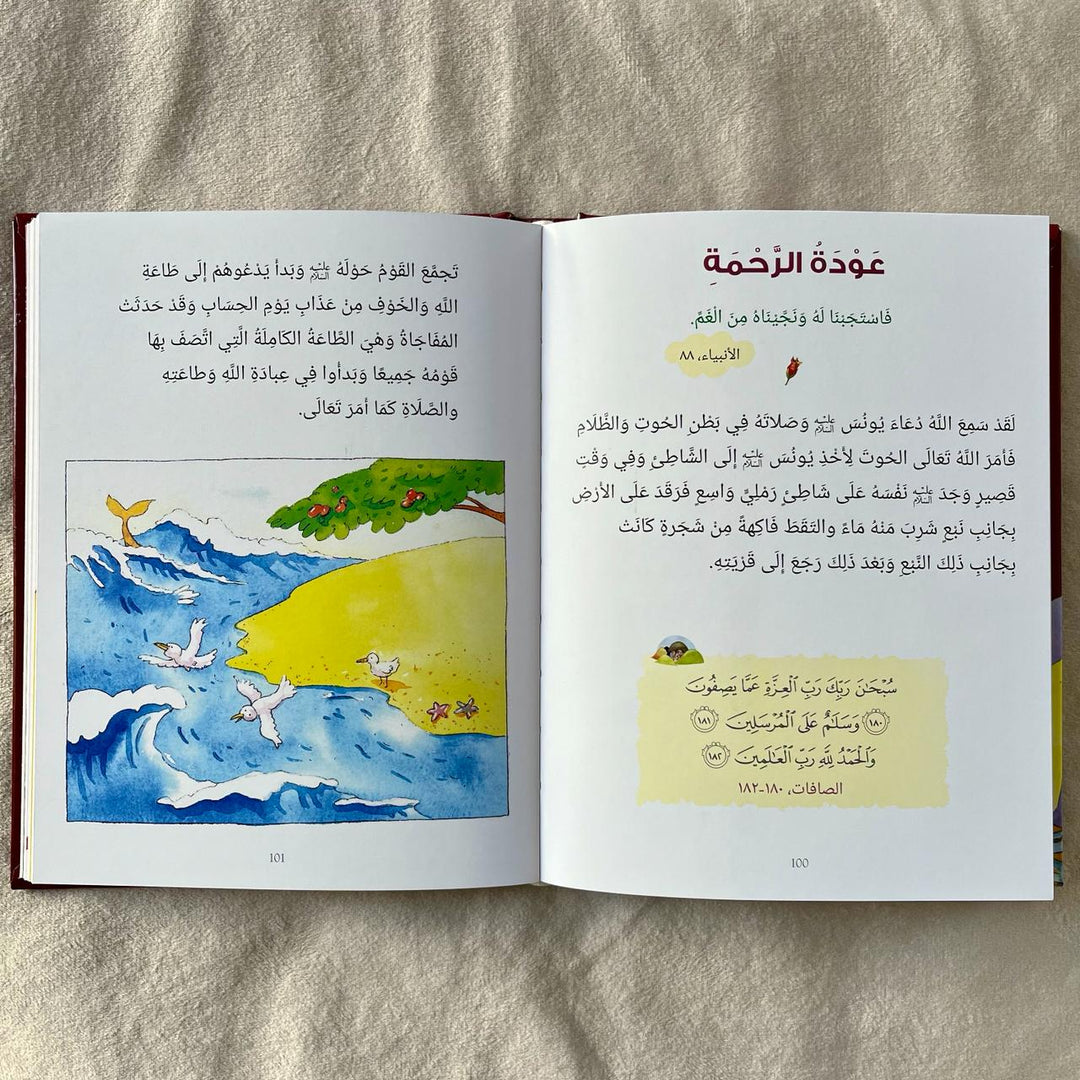 عَوْدَةُ الرَّحْمَةِ
فَاسْتَجَبْنَا لَهُ وَنَجَّيْنَاهُ مِنَ الْغَمِّ.
الأنبياء، ٨٨
لَقَدْ سَمِعَ اللَّهُ دُعَاءَ يُونُسَ عليه السلام وَصَلاتَهُ فِي بَطْنِ الحُوتِ وَالظَّلَامِ
فَأمَرَ اللَّهُ تَعَالَى الحُوتَ لِأخْذِ يُونُسَ عليه السلام إلَى الشَّاطِئِ وَفِي وَقْتٍ
قَصِيرٍ وَجَدَ عليه السلام نَفْسَهُ عَلَى شَاطِئٍ رَمْلِيٍّ وَاسِعٍ فَرَقَدَ عَلَى الأرْضِ
بِجَانِبِ نَبْعٍ شَرِبَ مَنْهُ مَاءً والتَقَطَ فَاكِهةً مِنْ شَجَرَةٍ كَانَتْ
بِجَانِبِ ذَلِكَ النَّبْعِ وَبَعْدَ ذَلِكَ رَجَعَ إلَى قَرْيَتِهِ.
سُبْحَٰنَ رَبِّكَ رَبِّ ٱلْعِزَّةِ عَمَّا يَصِفُونَ
١٨٠ وَسَلَٰمٌ عَلَى ٱلْمُرْسَلِينَ ١٨١
وَٱلْحَمْدُ لِلَّهِ رَبِّ ٱلْعَٰلَمِينَ ١٨٢
الصافات، ١٨٠-١٨٢
100
تَجمَّعَ القَوْمُ حَوْلَهُ عليه السلام وَبَدأ يَدْعُوهُمْ إلَى طَاعَةِ
اللَّهِ وَالخَوْفِ مِنْ عَذَابِ يَوْمِ الحِسَابِ وَقَدْ حَدَثَتْ
المُفَاجَاةُ وَهيَ الطَّاعَةُ الكَامِلَةُ الَّتِي اتَّصَفَ بِهَا
قَوْمُهُ جَمِيعًا وَبَدأُوا فِي عِبادَةِ اللَّهِ وَطاعَتِهِ
والصَّلَاةِ كَمَا أمَرَ تَعَالَى.
101